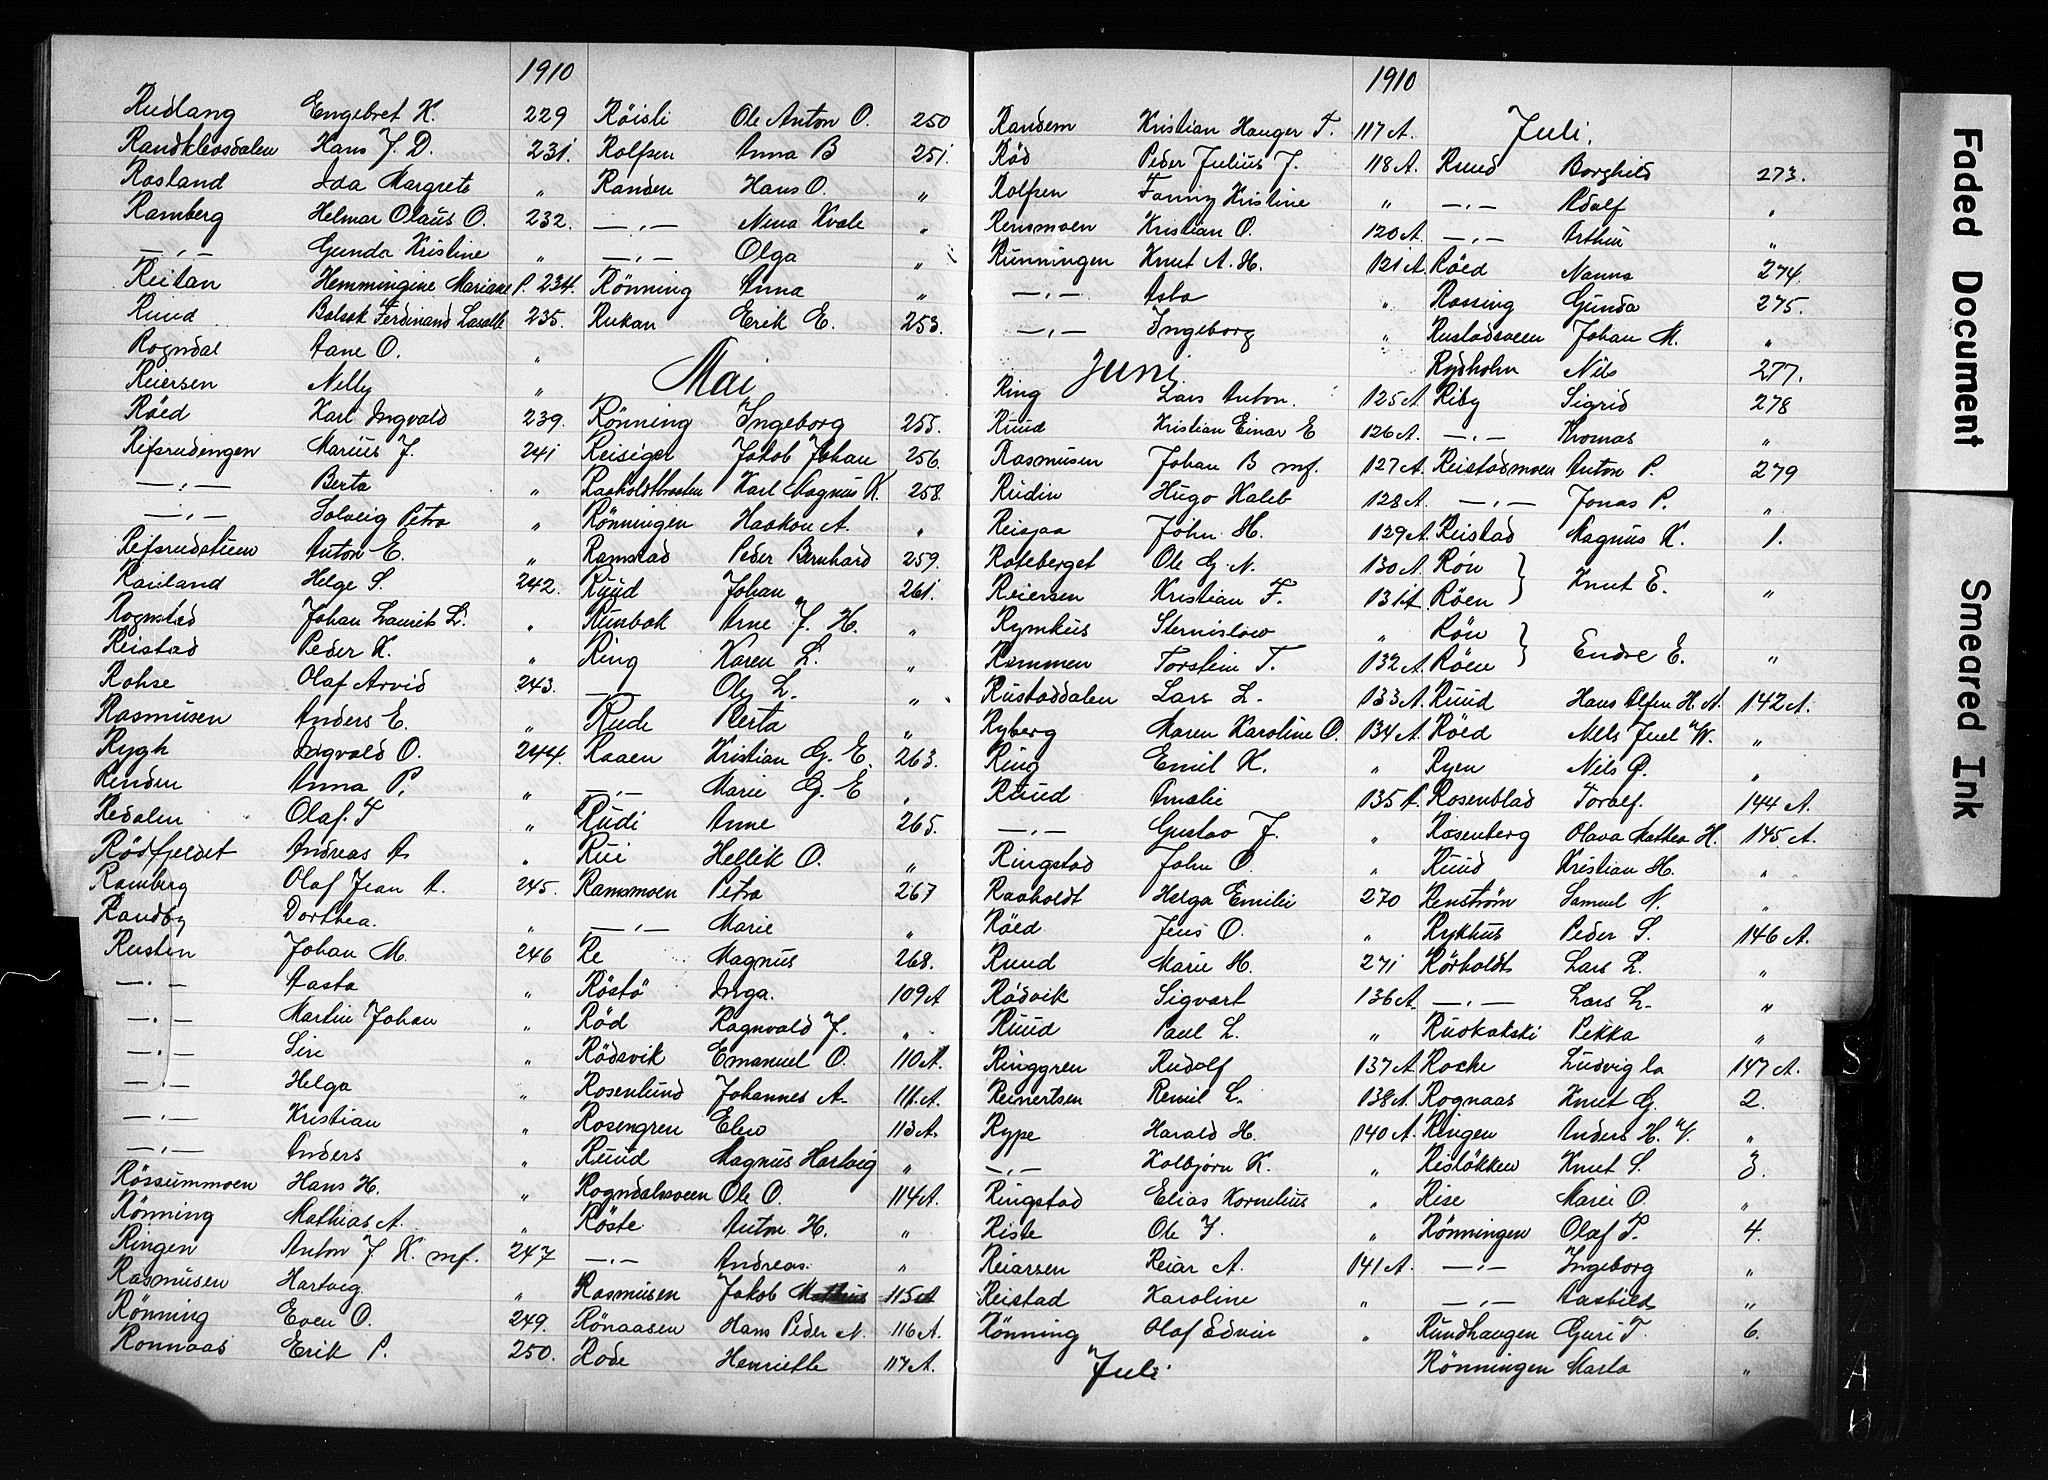 1910
Rudlang Engebret K. 229
Randklevsdalen Hans J. D. 231.
Rasland Ida Margrete "
Ramberg Helmar Olaus O. 232.
—"— Gunda Kristine "
Reitan Hemmingine Mariane P. 234.
Ruud Balsok Ferdinand Lasalle 235.
Rogndal Aane O. "
Reiersen Nelly "
Röed Karl Ingvald 239.
Rifsrudengen Marius J. 241
—"— Berta "
—"— Solveig Petra "
Rifsrudstuen Anton E. "
Rauland Helge S. 242.
Rognstad Johan Laurits L. "
Reistad Peder K. "
Rohse Olaf Arvid 243.
Rasmusen Anders E. "
Rygh Ingvald O. 244.
Renden Anna P. "
Redalen Olaf T "
Rödfjeldet Andreas A "
Ramberg Olaf Jean A. 245.
Randby Dorthea. "
Rusten Johan M. 246
—"— Aasta "
—"— Martin Johan "
—"— Siri "
—"— Helga "
—"— Kristian "
—"— Anders "
Rössummoen Hans H. "
Rönning Mathias A. "
Ringen Anton J. K. mf. 247
Rasmusen Hartvig "
Rönning Even O. 249.
Ronnaas Erik P. 250.
Röisli Ole Anton O. 250
Rolfsen Anna B 251.
Randen Hans O. "
—"— Nina Kvale "
—"— Olga "
Rönning Anna "
Rukan Erik E. 253.
Mai
Rönning Ingeborg 255.
Reisiger Jakob Johan 256.
Raaholdtbraaten Karl Magnus K. 258.
Rönningen Haakon A. "
Ramstad Peder Bernhard 259.
Ruud Johan 261.
Runbak Arne J. H. "
Ring Karen L. "
—"— Ole L. "
Rude Berta "
Raaen Kristian G. E. 263.
—"— Marie G. E "
Rudi Anne 265.
Rui Hellik O. "
Ramsmoen Petra 267
—"— Marie "
Re Magnus 268.
Röstö Inga. 109 A
Röd Ragnvald J. "
Rödsvik Emanuel O. 110 A.
Rosenlund Johannes A. 111 A.
Rosengren Elen 113 A.
Ruud Magnus Hartvig "
Rogndalsveen Ole O. 114 A.
Röste Anton H. "
—"— Andreas. "
Rasmusen Jakob Mathias 115 A
Rönaasen Hans Peder N. 116 A.
Rode Henriette 117 A.
1910
Randem Kristian Hauger T. 117 A.
Röd Peder Julius J. 118 A.
Rolfsen Fanny Kristine "
Rensmoen Kristian O. 120 A.
Runningen Knut A. H. 121 A.
—"— Asta "
—"— Ingeborg "
Juni
Ring Lars Anton. 125 A.
Ruud Kristian Einar E 126 A.
Rasmusen Johan B mf. 127 A.
Rudin Hugo Kaleb 128 A.
Reisjaa John H. 129 A.
Roteberget Ole G. N. 130 A.
Reiersen Kristian F. 131 A.
Rymkus Sternislow "
Rammen Torstein T. 132 A.
Rustaddalen Lars L. 133 A.
Ryberg Maren Karoline O. 134 A.
Ring Emil K. "
Ruud Amalie 135 A.
—"— Gustav J. "
Ringstad John O. "
Raaholdt Helga Emilie 270
Röed Jens O. "
Ruud Marie H. 271
Rödvik Sigvart 136 A.
Ruud Paul L. "
Ringgren Rudolf 137 A.
Reinertsen Remil L. 138 A.
Rype Harald H. 140 A.
—"— Kolbjörn K. "
Ringstad Elias Kornelius "
Riste Ole J. "
Reiarsen Reiar A. 141 A.
Reistad Karoline "
Rönning Olaf Edvin "
Juli
Juli.
Ruud Borghild 273.
—"— Adolf "
—"— Arthur "
Röed Nanna 274.
Rossing Gunda 275.
Rustadsveen Johan M. "
Rydholm Nils 277.
Riby Sigrid 278
—"— Thomas "
Reistadmoen Anton P. 279
—"— Jonas P. "
Reistad Magnus K. 1.
Rön
Röen } Knut E. "
Rön
Röen } Endre E. "
Ruud Hans Olsen H. A. 142 A.
Röed Nils Juel W. "
Ryen Nils P. "
Rosenblad Toralf. 144 A.
Rosenberg Olava Mathea H. 145 A.
Ruud Kristian H. "
Renström Samuel N. "
Rykhus Peder S. 146 A.
Rörholdt Lars L. "
—"— Lars L. "
Ruokakski Pekka "
Roche Ludvig la 147 A.
Rognaas Knut G. 2.
Ringen Anders H. W. "
Rislökken Knut S. 3.
Rise Marie O. "
Rönningen Olaf T. 4.
—"— Ingeborg "
—"— Aashild "
Rundhaugen Guri T. 6.
Rönningen Marta "
Faded Document
Smeared Ink